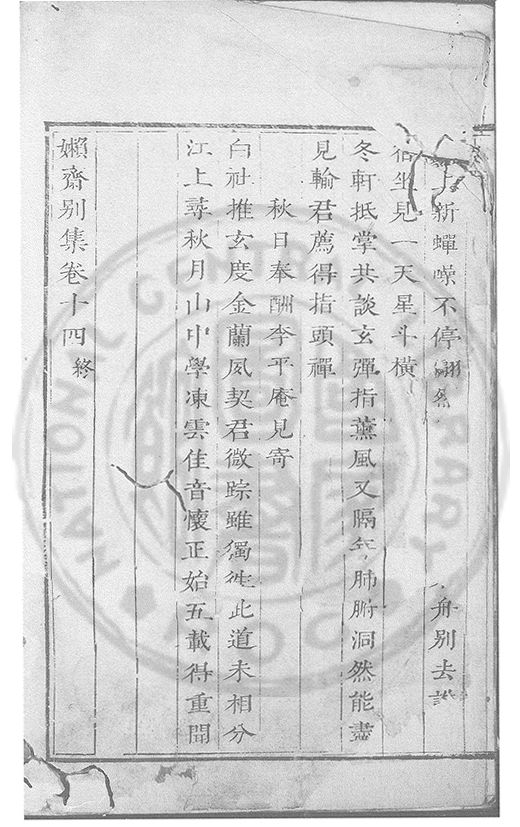 上新蟬噪不停翩然舟別去
宿坐見一天星斗橫
冬軒抵掌共談玄彈指薰風又隔年肺腑洞然能盡
見輸君薦得指頭禪
秋日奉酬李平庵見寄
白社推玄度金蘭夙契君微踪雖獨往此道未相分
江上尋秋月山中學凍雲佳音懷正始五載得重聞
嬾齋別集卷十四終
NATIONAL CENTRAL LIBRARY